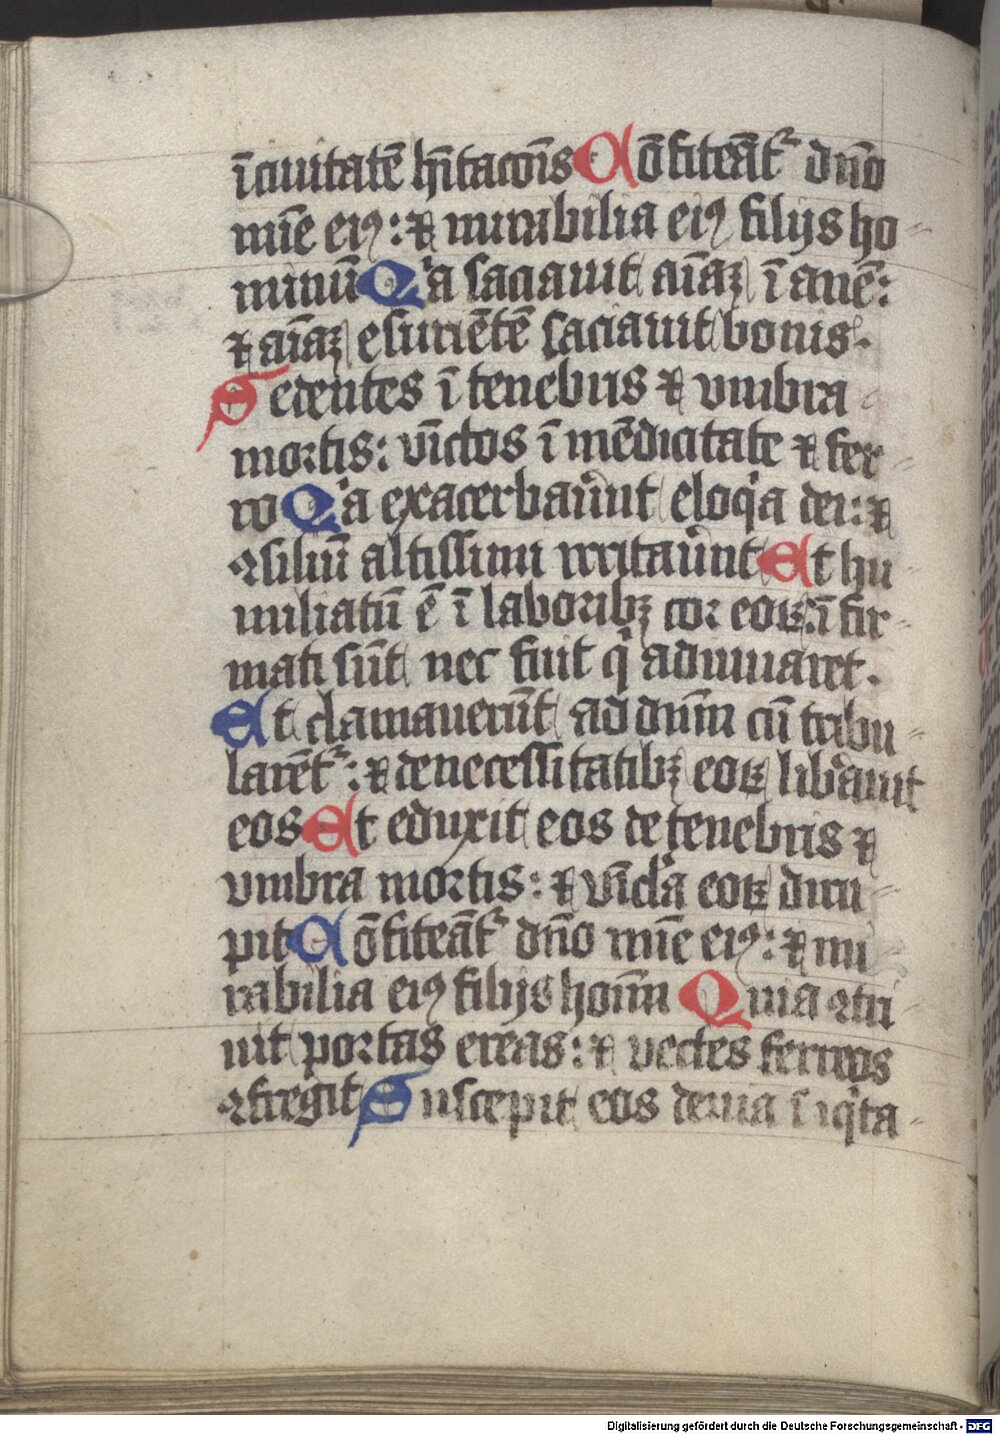 ī ciuitatē hītacōis Cōfiteāt᷑ dño
mīe eiꝰ: ⁊ mirabilia eiꝰ filijs ho⸗
minū Qͥa saciauit aīaꝫ īanē:
⁊ aīaꝫ esuriētē saciauit bonis.
Sedentes ī tenebris ⁊ vmbra
mortis: vīctos ī mēdicitate ⁊ fer⸗
ro Qͥa exacerbauͬnt eloqͥa dei: ⁊
ꝯsiliū altissimi irritauͬnt Et hu
miliatū ē ī laboribꝫ cor eoꝝ: īfir⸗
mati sūt nec fuit qͥ adiuuaret.
Et clamauerūt ad dn̄m cū tribu⸗
larēt᷑: ⁊ de necessitatibꝫ eoꝝ libͣauit
eos Et eduxit eos de tenebris ⁊
vmbra mortis: ⁊ vīcla eoꝝ diru⸗
pit Cōfiteāt᷑ dño mīe eiꝰ: ⁊ mi⸗
rabilia eiꝰ filijs hoīm Quia ꝯtri⸗
uit portas ereas: ⁊ vectes ferreos
ꝯfregit Suscepit eos de uia iīqͥta⸗
Digitalisierung gefördert durch die Deutsche Forschungsgemeinschaft - DFG